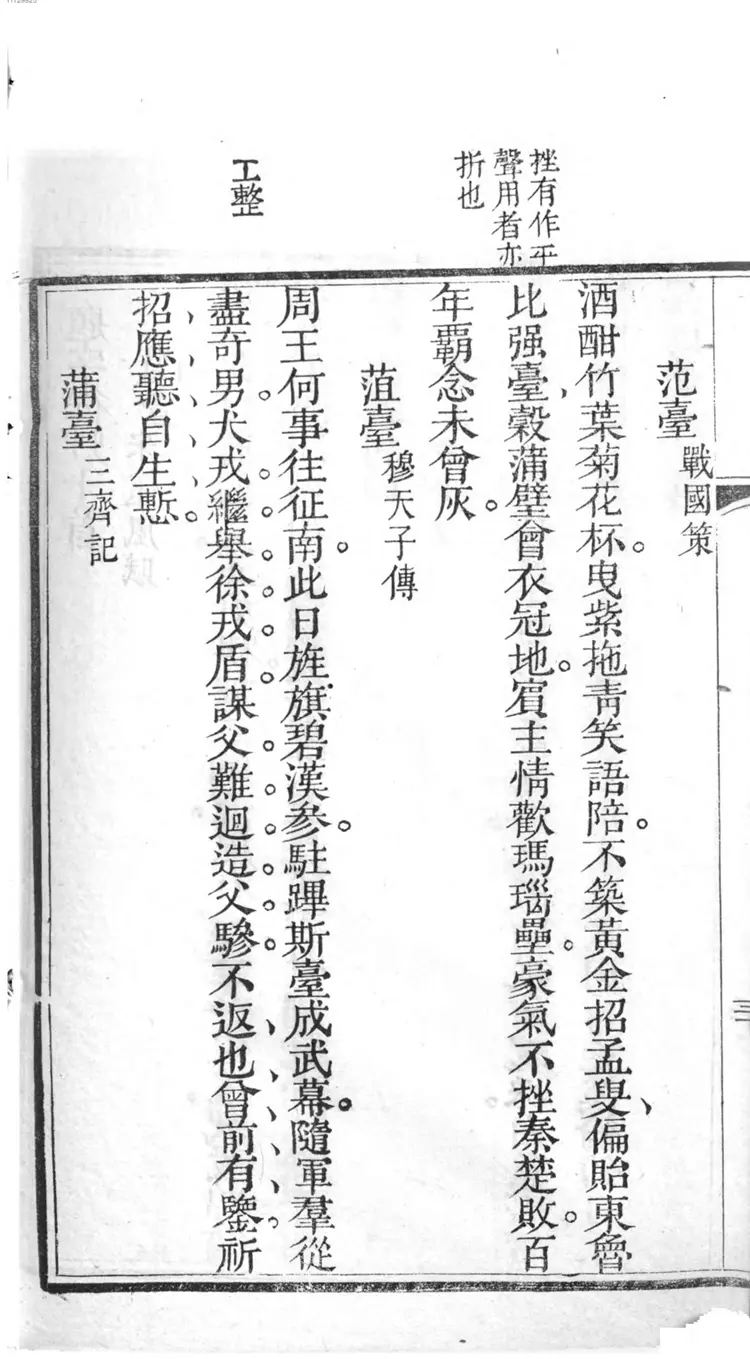 挫有作平
聲用者亦
折也
工整
范臺 戰國策
酒酣竹葉菊花杯。曳紫拖青笑語陪。不築黃金招孟叟、偏貽東魯
比强臺、穀蒲璧會衣冠地。賓主情歡瑪瑙罍。豪氣不挫秦楚敗。百
年覇念未曾灰。
菹臺 穆天子傳
周王何事往征南。此日旌旗碧漢參。駐蹕斯臺成武幕。隨軍羣從
盡奇男。犬戎繼舉徐戎盾謀父難迴造父驂不返也曾前有鑒。祈
招應聽自生慙。
蒲臺 三齊記
三